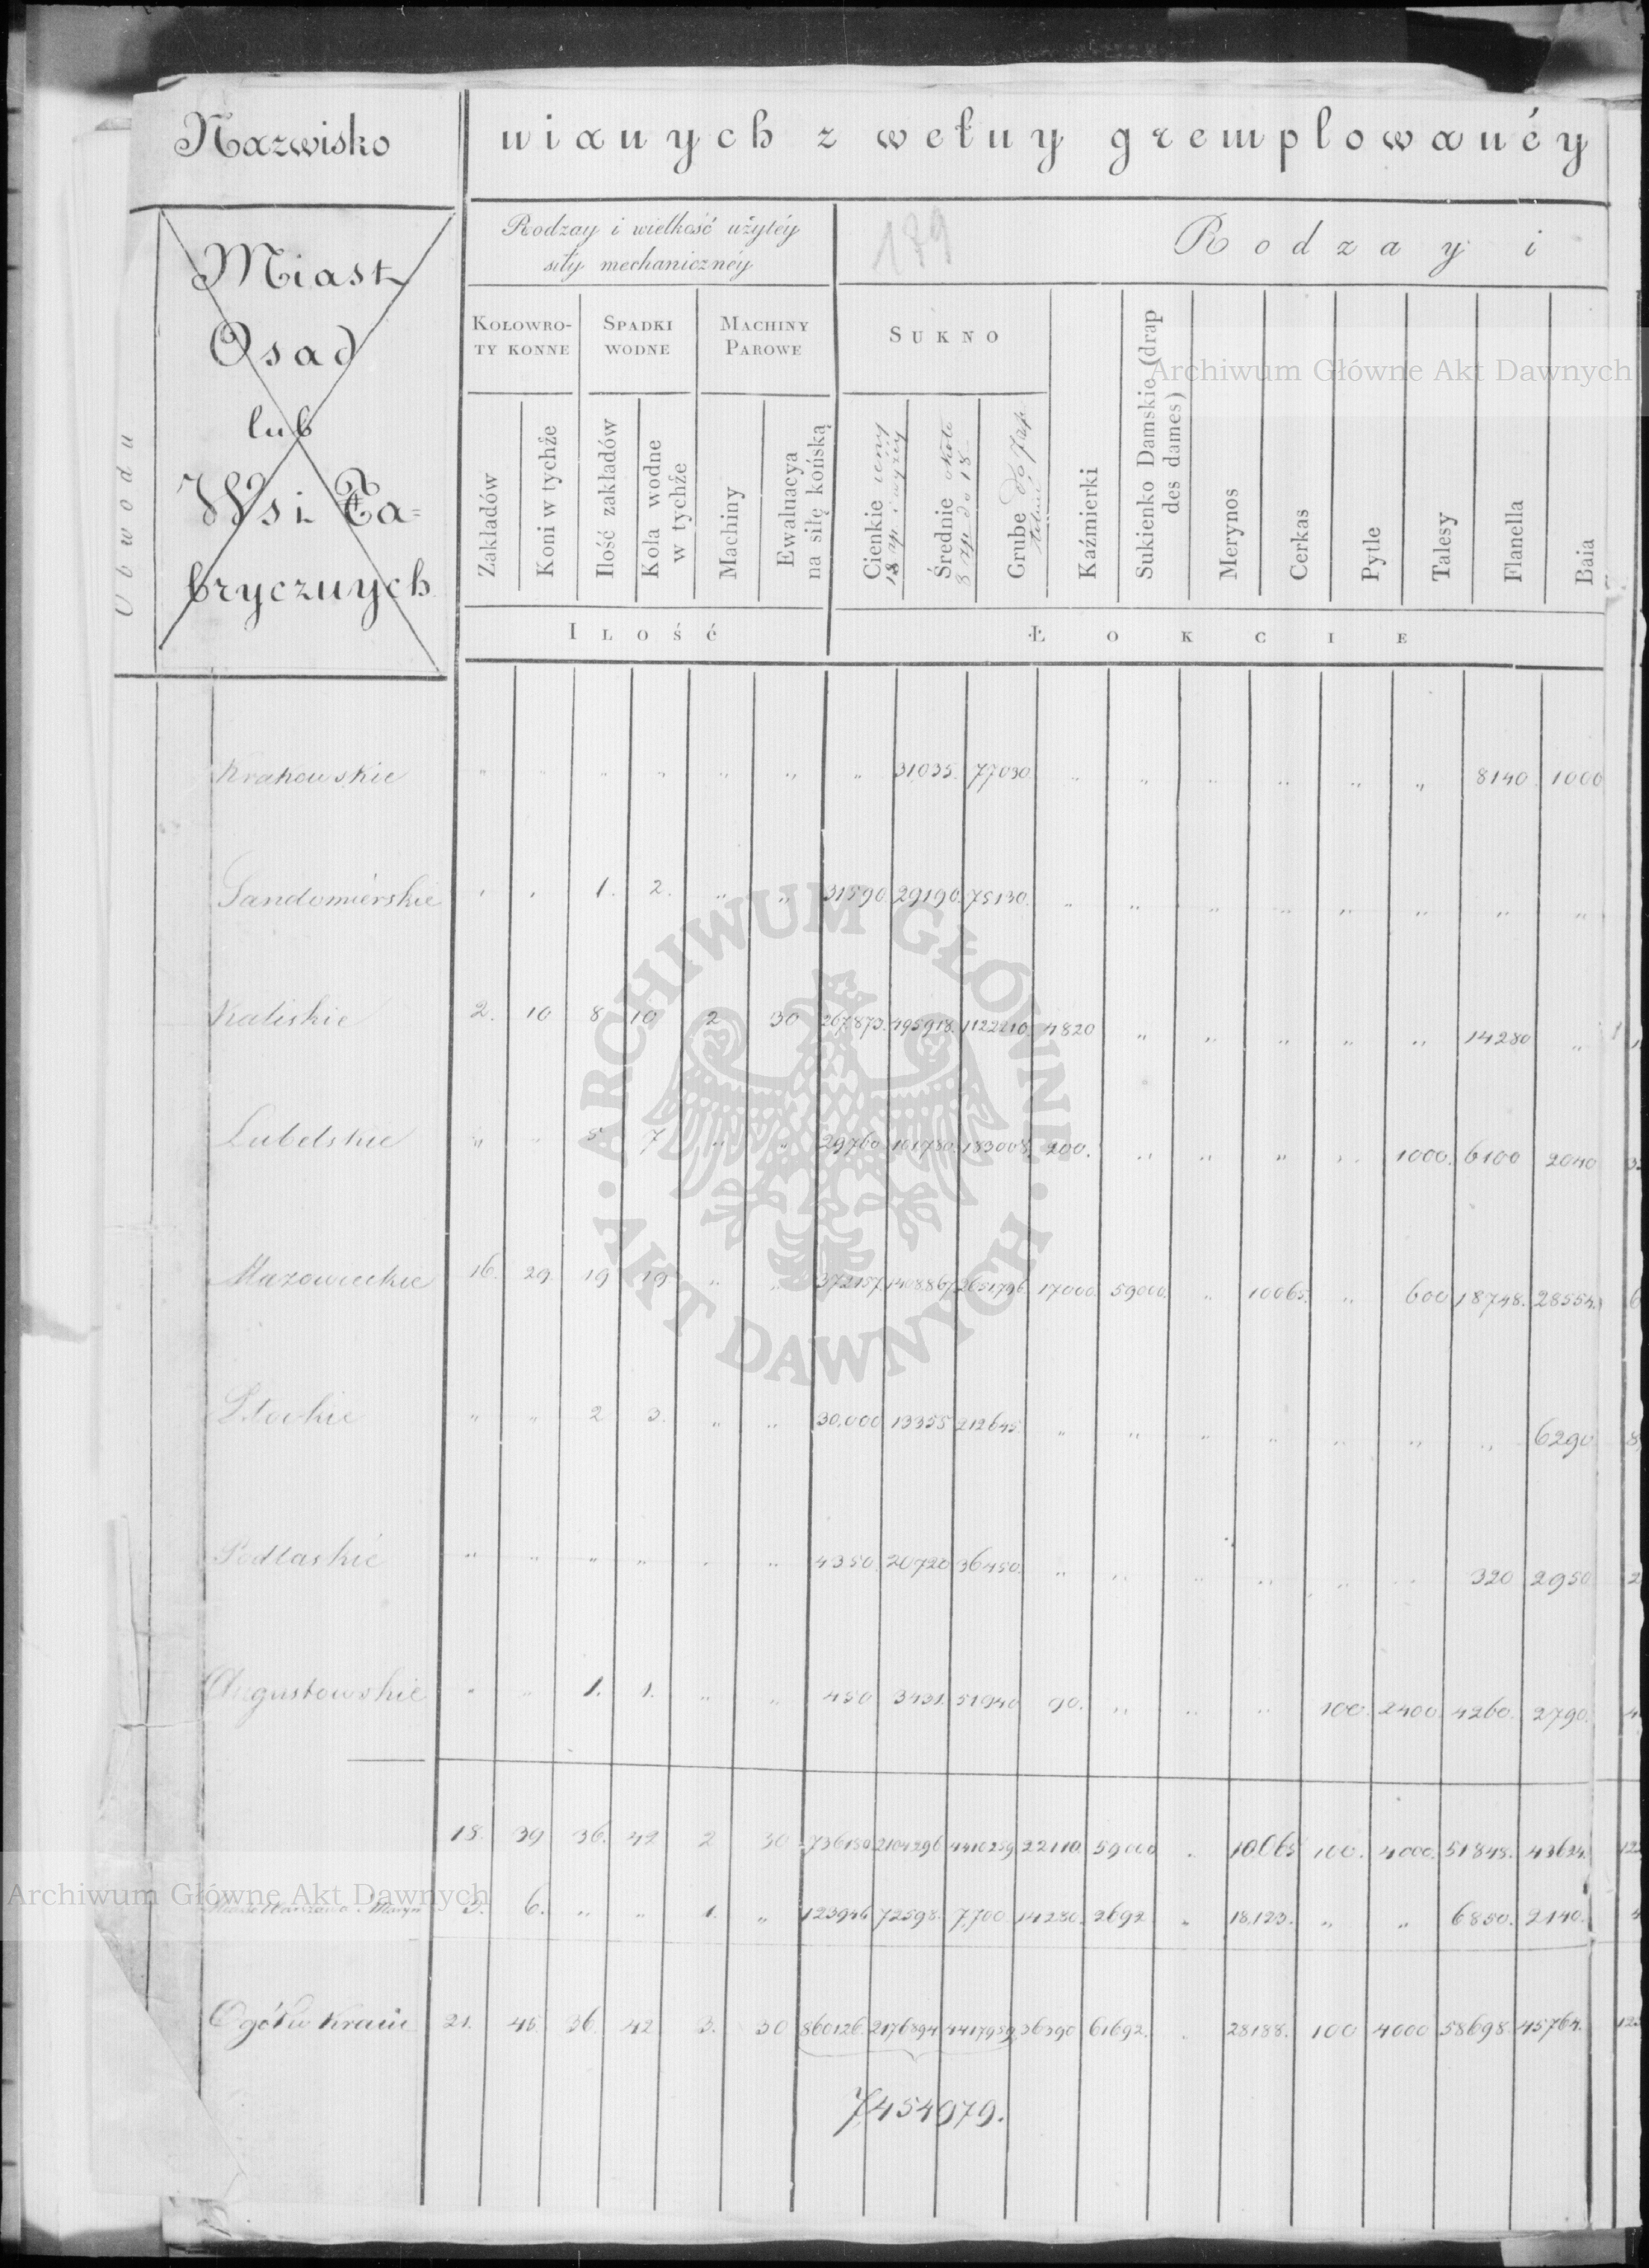 Nazwisko
nianych z wełny gremplowanéy
Obwodu
Miast
Osad
lub
Wsi Fa=
brycznych
Rodzay i wielkość użytéy
siły mechanicznéy
179
Rodzay i
KOŁOWRO-
TY KONNE
SPADKI
WODNE
MACHINY
PAROWE
SUKNO
Zakładów
Koni w tychże
Ilość zakładów
Koła wodne
w tychże
Machiny
Ewaluacya
na siłę końską
Cienkie
Średnie
Grube
Kaźmierki
Sukienko Damskie (drap
des dames)
Merynos
Cerkas
Pytle
Talesy
Flanella
Baia
Ilość
ŁOKCIE
Krakowskie " " " " " " " 31035. 77030. " " " " " " 8140 1000
Sandomiérskie " " 1. 2. " " 31590. 29190. 75130. " " " " " " " "
Kaliskie 2. 10 8 10 2 30 267873. 495918. 1122210. 4820 " " " " " 14280 "
Lubelskie " " 5 7 " " 29760. 101780. 183008. 200. " " " " 1000. 6100 2040
Mazowieckie 16. 29. 19 19 " " 372157. 1408867. 2651796. 17000. 59000. " 10065. " 600 18748. 28554.
Płockie " " 2 3. " " 30,000 13355 212645. " " " " " " " 6290.
Podlaskie " " " " " " 4350. 20720 36450. " " " " " " 320 2950
Augustowskie " " 1. 1. " " 450 3431. 51940 90. " " " 100. 2400. 4260. 2790.
18. 39 36. 42 2 30 736180 2104296 4410259. 22110. 59000 " 10065 100. 4000. 51848. 43624.
3. 6. " " 1. " 123946 72598. 7700. 14280. 2692 " 18,123. " " 6850. 2140.
Ogół w Kraiu 21. 45. 36. 42 3. 30 860126. 2176894 4417959. 36390 61692. " 28188. 100 4000 58698. 45764.
7,454979.
Archiwum Główne Akt Dawnych
ARCHIWUM GŁÓWNE
AKT DAWNYCH
Archiwum Główne Akt Dawnych